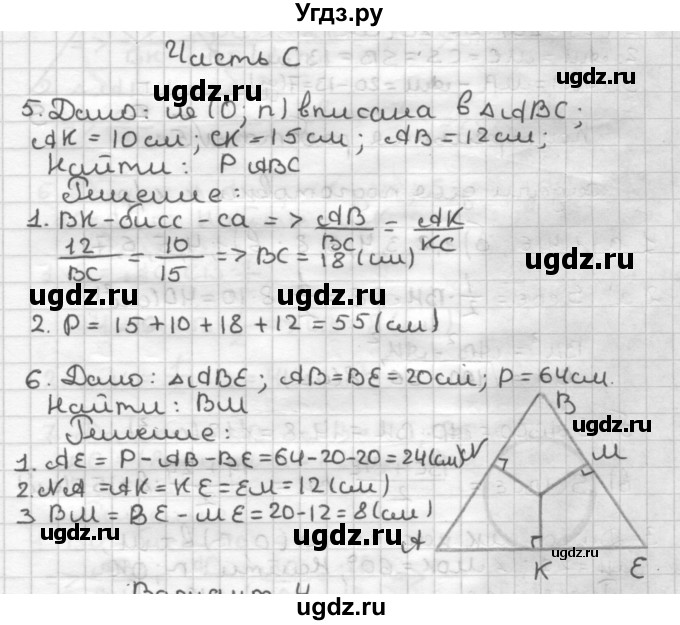 Угдз.ру
Часть С
5. Дано: ш (О; r) вписана в △ABC;
AK = 10 см; CK = 15 см; AB = 12 см;
Найти: P ABC
Решение:
1. BK - бисс - са => AB/BC = AK/KC
12/BC = 10/15 => BC = 18 (см)
2. P = 15 + 10 + 18 + 12 = 55 (см)
6. Дано: △ABE; AB = BE = 20 см; P = 64 см.
Найти: BM
Решение:
1. AE = P - AB - BE = 64 - 20 - 20 = 24 (см)
2. NA = AK = KE = EM = 12 (см)
3 BM = BE - ME = 20 - 12 = 8 (см)
B
N
M
A
K
E
Вариант 4
uqdz.ru
uqdz.ru
uqdz.ru
uqdz.ru
uqdz.ru
uqdz.ru
uqdz.ru
uqdz.ru
uqdz.ru
uqdz.ru
uqdz.ru
uqdz.ru